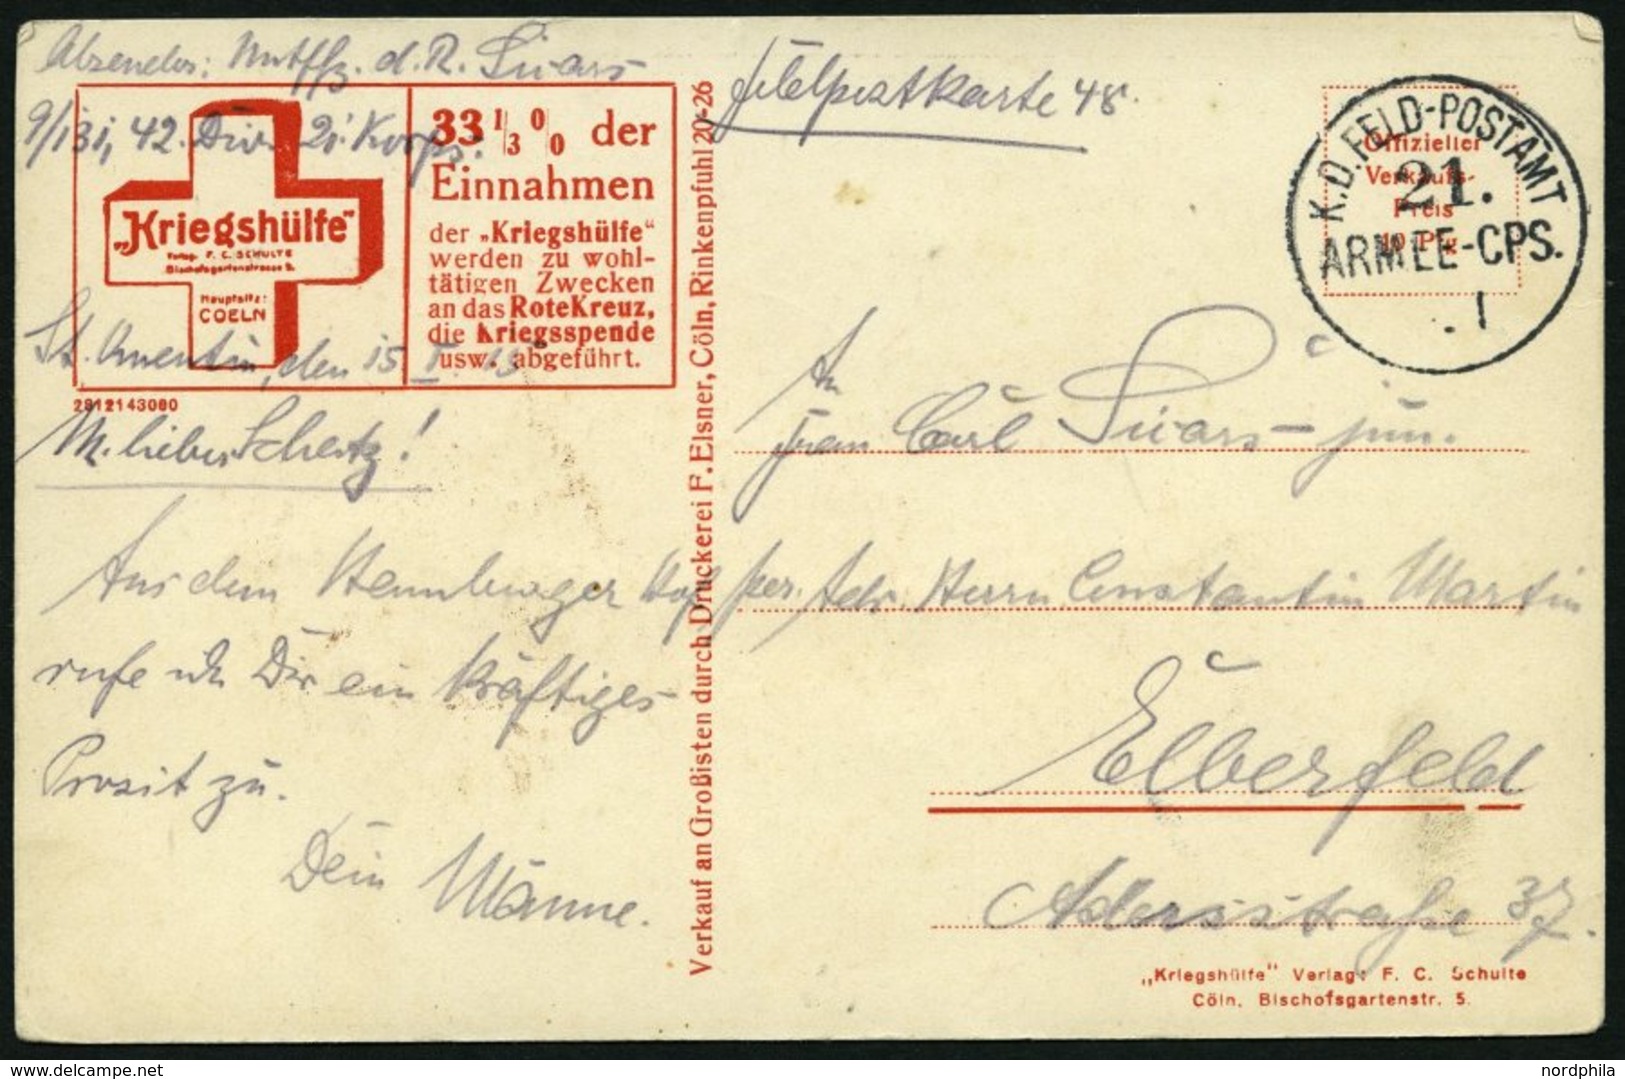 Absender: Untffz. d. R.
9/131, 42. Div. 21. Korps.
Feldpostkarte 48.
„Kriegshülfe“
Verlag: F. C. SCHULTE
Bischofsgartenstrasse 5.
Hauptsitz:
COELN
33 1/3 0/0 der
Einnahmen
der „Kriegshülfe“
werden zu wohl-
tätigen Zwecken
an das Rote Kreuz,
die Kriegsspende
usw. abgeführt.
2812143080
K.D. FELD-POSTAMT
21.
ARMEE-CPS.
Offizieller
Verkaufs-
Preis
10 Pfg.
St. Quentin, den 15. I. 15
M. lieber Schatz!
Aus dem Hof
rufe ich Dir ein kräftiges
Prosit zu.
Dein Männe.
Verkauf an Großisten durch Druckerei F. Elsner, Cöln, Rinkenpfuhl 20-26
An
Frau Carl jun.
per. Adr. Herrn Constantin Martin
Elberfeld
Adersstraße 37.
„Kriegshülfe“ Verlag: F. C. Schulte
Cöln, Bischofsgartenstr. 5.
nordphila